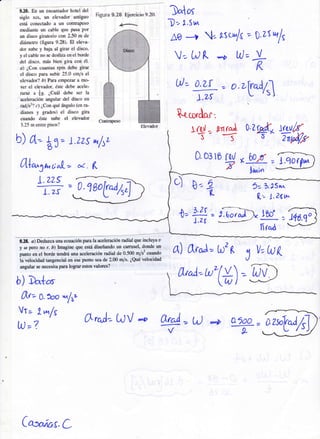 9.20. En un encantador hotel del
siglo XIX, un elevador antiguo
está conectado a un contrapeso
mediante un cable que pasa por
un disco giratorio con 2.50 m de
diámetro (figura 9.28). El eleva-
dor sube y baja al girar el disco,
y el cable no se desliza en el bordo
del disco, más bien gira con él.
a) ¿Con cuántas rpm debe girar
el disco para subir 25.0 cm/s el
elevador? b) Para empezar a mo-
ver el elevador, éste debe acele-
rarse a 1/8 g. ¿Cuál debe ser la
aceleración angular del disco en
rad/s²? c) ¿Con qué ángulo (en ra-
dianes y grados) el disco gira
cuando éste sube el elevador
3.25 m entre pisos?
Figura 9.28 Ejercicio 9.20.
Disco
Contrapeso
Elevador
Datos
D = 2.5m
Δθ → V = 25cm/s = 0.25m/s
V = WR → W = V/R
W = 0.25/1.25 = 0.2[rad/s]
Recordar:
1 rev = 2π rad
0.2 rad/s 1 rev/2π rad
0.0318 rev/s × 60 s/1min = 1.90 rpm
b) a = 1/8 g = 1.225 m/s²
a tangencial = α. R
1.225/1.25 = 0.980[rad/s²]
c) θ = S/R S = 3.25m
R = 1.25m
θ = 3.25/1.25 = 2.6 orad × 180°/π rad = 148.9°
9.28. a) Deduzca una ecuación para la aceleración radial que incluya v
y ω pero no r. b) Imagine que está diseñando un carrusel, donde un
punto en el borde tendrá una aceleración radial de 0.500 m/s² cuando
la velocidad tangencial en ese punto sea de 2.00 m/s. ¿Qué velocidad
angular se necesita para lograr estos valores?
a) arad = W²R y V = WR
arad = W² (V/W) = WV
b) Datos
ar = 0.500 m/s²
VT = 2 m/s
W = ?
a rad = WV → arad/V = W → 0.500/2 = 0.250[rad/s]
Casaños.C